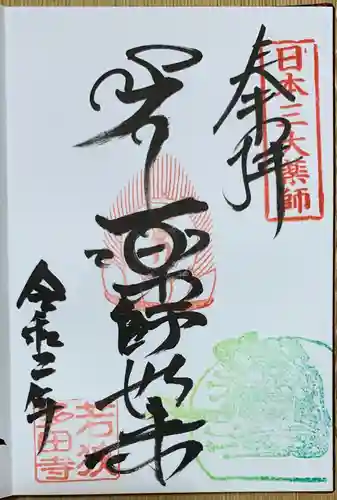 奉拝
日本三大薬師
薬師如来
令和二年
若狭
多田寺